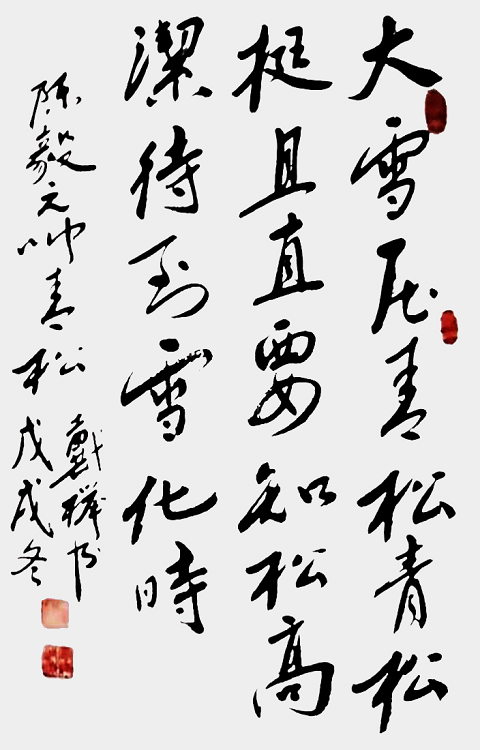 大雪压青松青松
挺且直要知松高
潔待到雪化時
陈毅元帅青松
戴书
戊戌冬